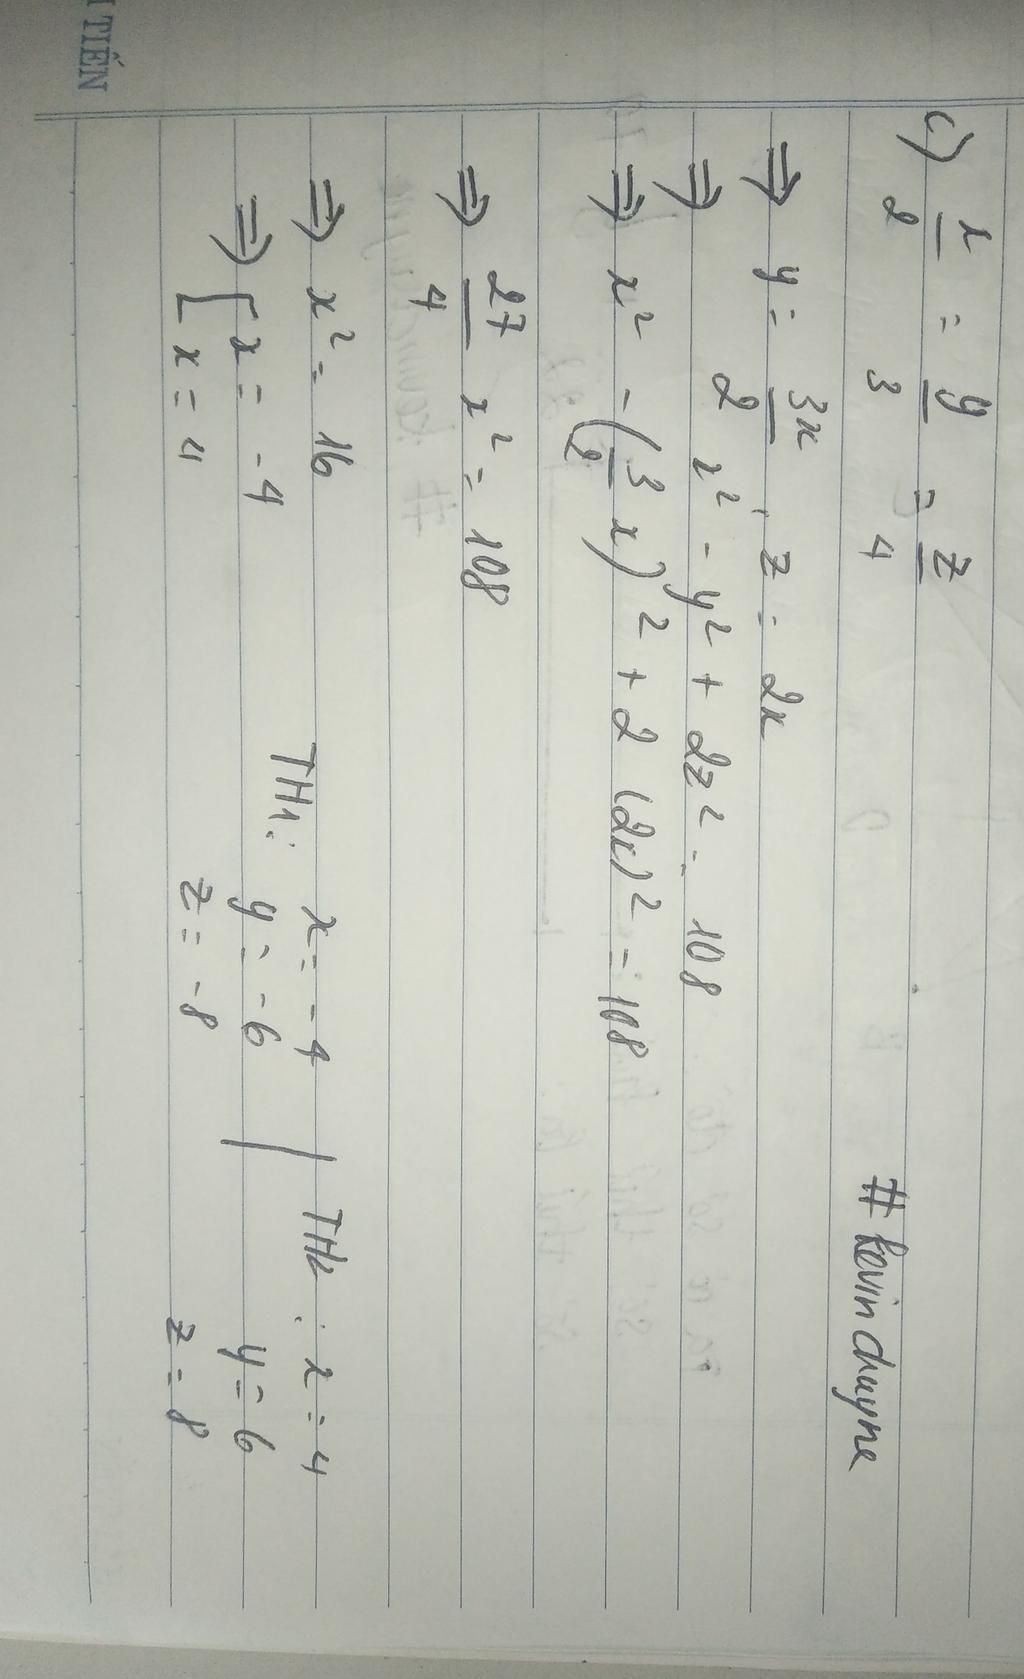 c) x/2 = y/3 = z/4
# kevinchuyne
⇒ y = 3x/2, z = 2x
⇒ x² - y² + 2z² = 108
⇒ x² - (3/2 x)² + 2 (2x)² = 108
⇒ 27/4 x² = 108
⇒ x² = 16
⇒ [ x = -4
x = 4
TH1: x = -4
y = -6
z = -8
TH2: x = 4
y = 6
z = 8
TIẾN